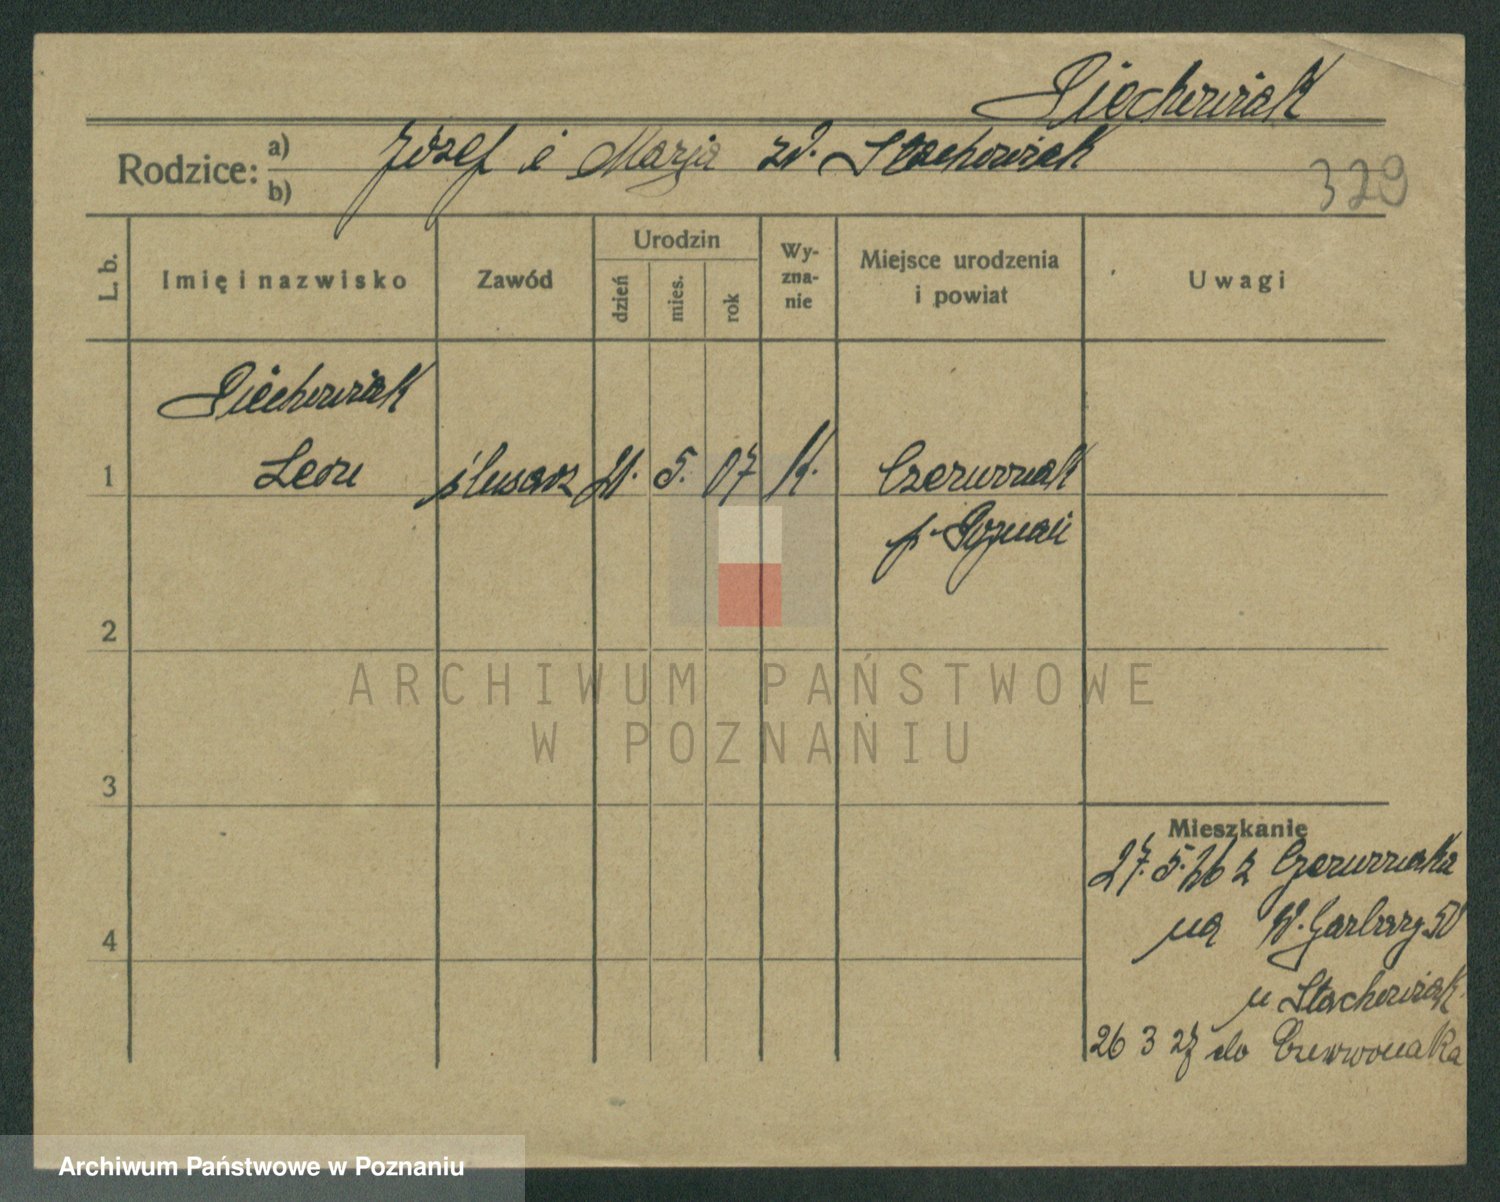 Piechowiak
Rodzice: a) b) Józef i Marja zd. Stachowiak
329
L. b.
Imię i nazwisko
Zawód
Urodzin
dzień
mies.
rok
Wy-
zna-
nie
Miejsce urodzenia
i powiat
Uwagi
Piechowiak
1 Leon ślusarz 5. 07 K. Czerwonak
p. Poznań
2
3
4
Mieszkanie
27.5.26 z Czerwonaka
na W. Garbary 50
u Stachowiak
26 3 27 do Czerwonaka
ARCHIWUM PAŃSTWOWE
W POZNANIU
Archiwum Państwowe w Poznaniu